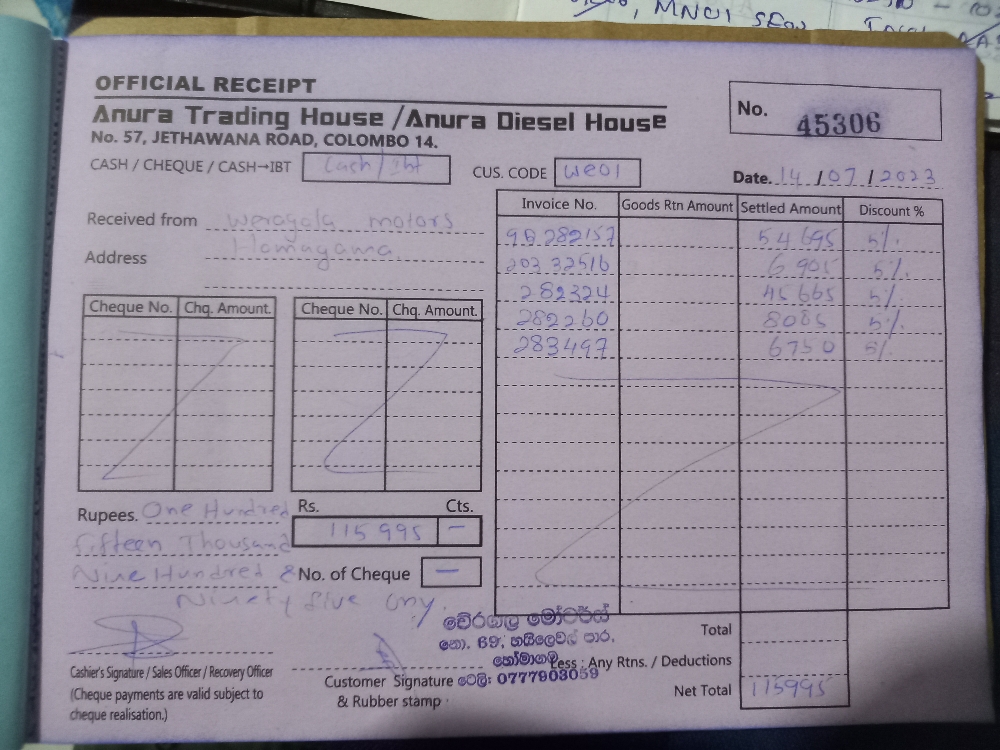 MNO1
OFFICIAL RECEIPT
Anura Trading House /Anura Diesel House
No. 57, JETHAWANA ROAD, COLOMBO 14.
No. 45306
CASH / CHEQUE / CASH→IBT Cash / Ibt
CUS. CODE WE01
Date. 14 / 07 / 2023
Received from Weragala motors
Address Homagama
Invoice No. Goods Rtn Amount Settled Amount Discount %
98 282157 54 695 5%
203 32516 6 905 5%
282324 45 665 5%
282260 8085 5%
283497 6750 5%
Cheque No. Chq. Amount. Cheque No. Chq. Amount.
Rupees. One Hundred
fifteen Thousand
Nine Hundred &
Ninety five only.
Rs. Cts.
115 995 —
No. of Cheque —
වේරගල මෝටර්ස්
නො. 69, හයිලෙවල් පාර,
හෝමාගම
ටෙලි: 0777903059
Total
Less : Any Rtns. / Deductions
Net Total 115995
Cashier's Signature / Sales Officer / Recovery Officer
(Cheque payments are valid subject to
cheque realisation.)
Customer Signature
& Rubber stamp